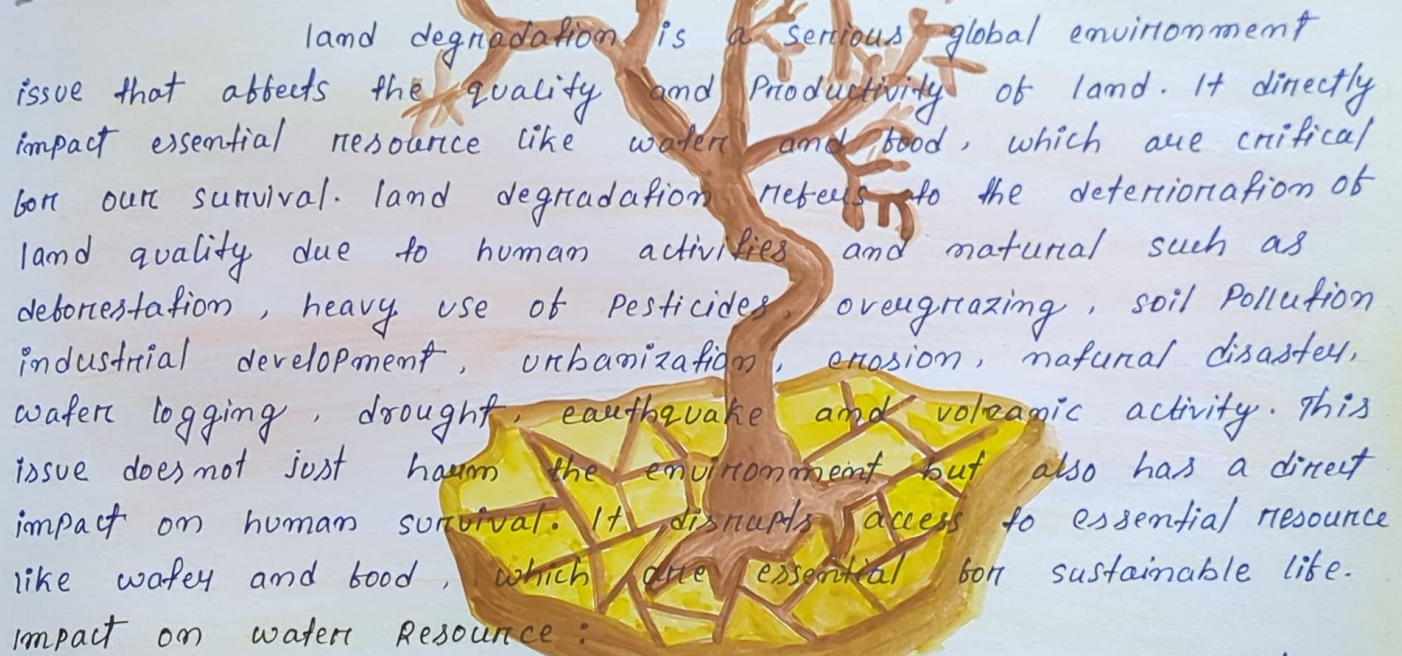 land degradation is a serious global envirronment
issue that affects the quality and Productivity of land. It directly
impact essential resource like water and food, which are critical
for our survival. land degradation refers to the deterrioration of
land quality due to human activities and natural such as
deforestation, heavy use of Pesticides, overgrazing, soil Pollution
industrial development, urbanization, erosion, natural disaster,
water logging, drought, earthquake and volcanic activity. This
issue does not just harm the environment but also has a direct
impact on human survival. It disrupts access to essential resource
like water and food, which are essential for sustainable life.
Impact on water Resource :